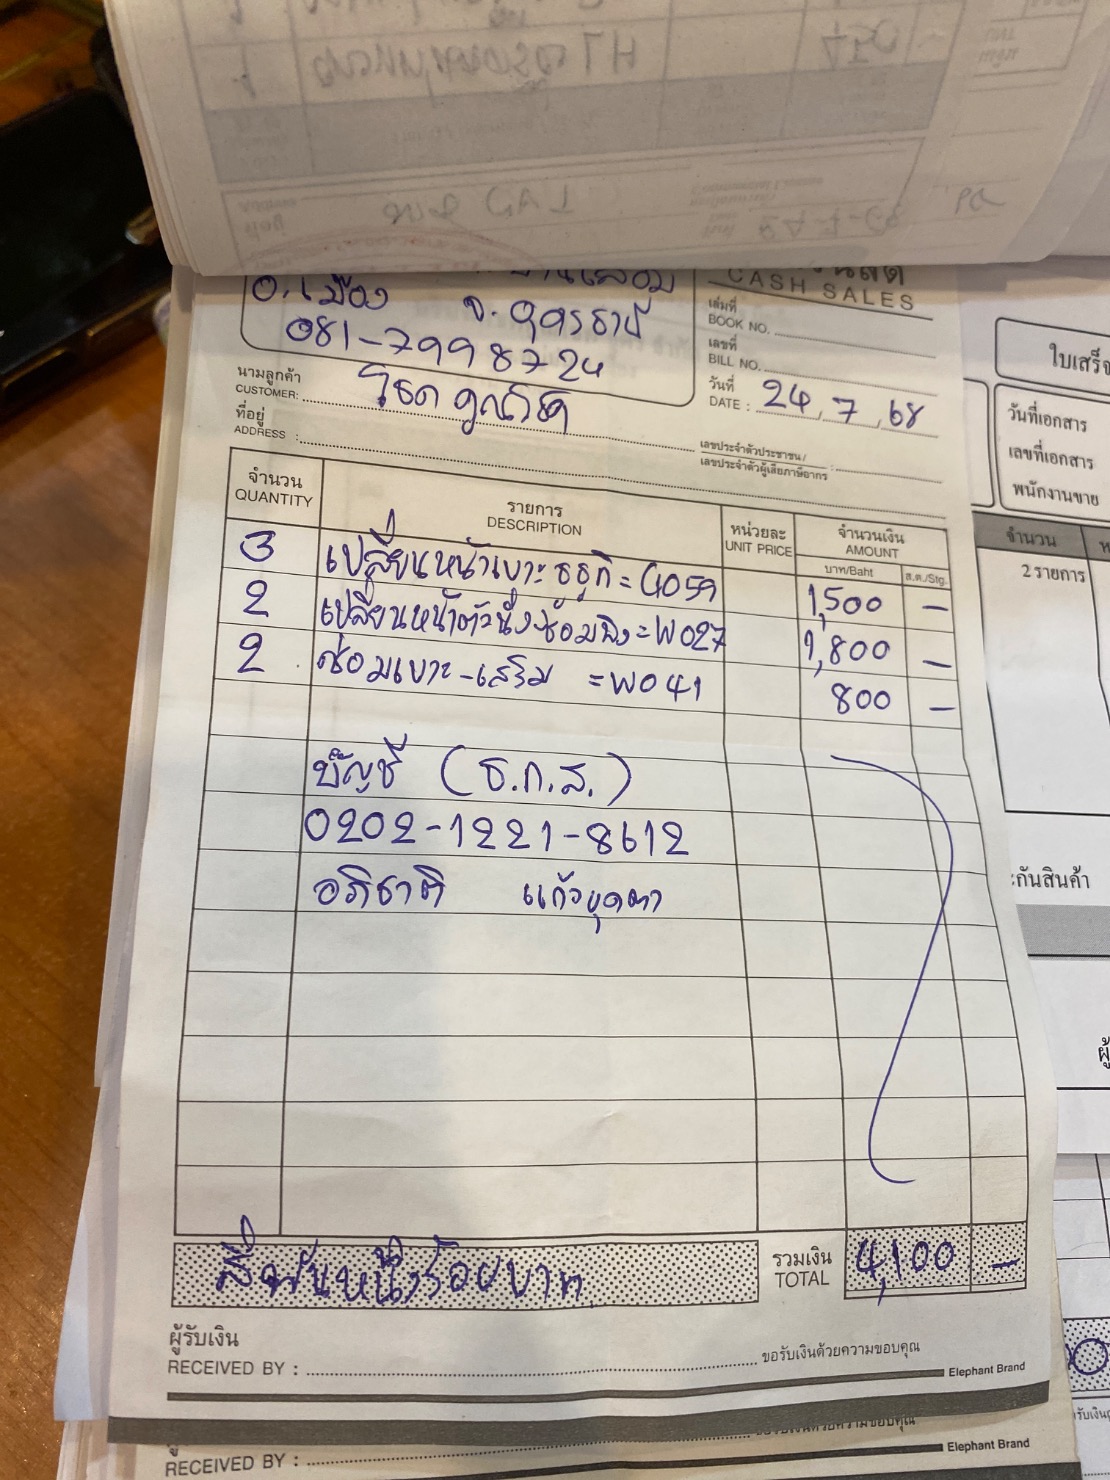 CASH SALES
อ.เมือง จ.อุดรธานี
081-7998724
เล่มที่
BOOK NO.
เลขที่
BILL NO.
วันที่
DATE : 24, 7, 68
นามลูกค้า
CUSTOMER:
ที่อยู่
ADDRESS :
เลขประจำตัวประชาชน/
เลขประจำตัวผู้เสียภาษีอากร
จำนวน
QUANTITY
รายการ
DESCRIPTION
หน่วยละ
UNIT PRICE
จำนวนเงิน
AMOUNT
บาท/Baht ส.ต./Stg.
3 เปลี่ยนหน้าเบาะ = G059 1,500 –
2 เปลี่ยนหน้าตัวนั่ง = W027 1,800 –
2 ซ่อมเบาะ-เสริม = W041 800 –
บัญชี (ธ.ก.ส.)
0202-1221-8612
อภิชาติ แก้วบุดตา
สี่พันหนึ่งร้อยบาท
รวมเงิน
TOTAL 4,100 –
ผู้รับเงิน
RECEIVED BY : ขอรับเงินด้วยความขอบคุณ
Elephant Brand
RECEIVED BY :
Elephant Brand
ใบเสร็จ
วันที่เอกสาร
เลขที่เอกสาร
พนักงานขาย
จำนวน
2 รายการ